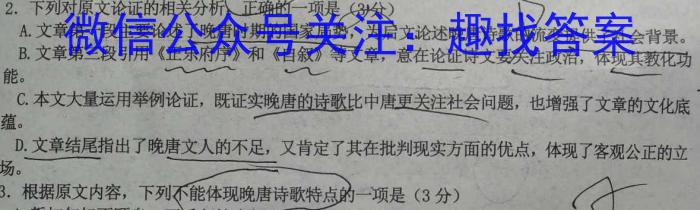 2. 下列对原文论证的相关分析，正确的一项是（3分）
微信公众号关注：趣找答案
A. 文章第一段主要论述了晚唐时期的国家局势，为后文论述晚唐诗歌的流变提供了社会背景。
B. 文章第二段引用《正乐府序》和《自叙》等文章，意在论证诗文要关注政治，体现其教化功
能。
C. 本文大量运用举例论证，既证实晚唐的诗歌比中唐更关注社会问题，也增强了文章的文化底
蕴。
D. 文章结尾指出了晚唐文人的不足，又肯定了其在批判现实方面的优点，体现了客观公正的立
场。
3. 根据原文内容，下列不能体现晚唐诗歌特点的一项是（3分）